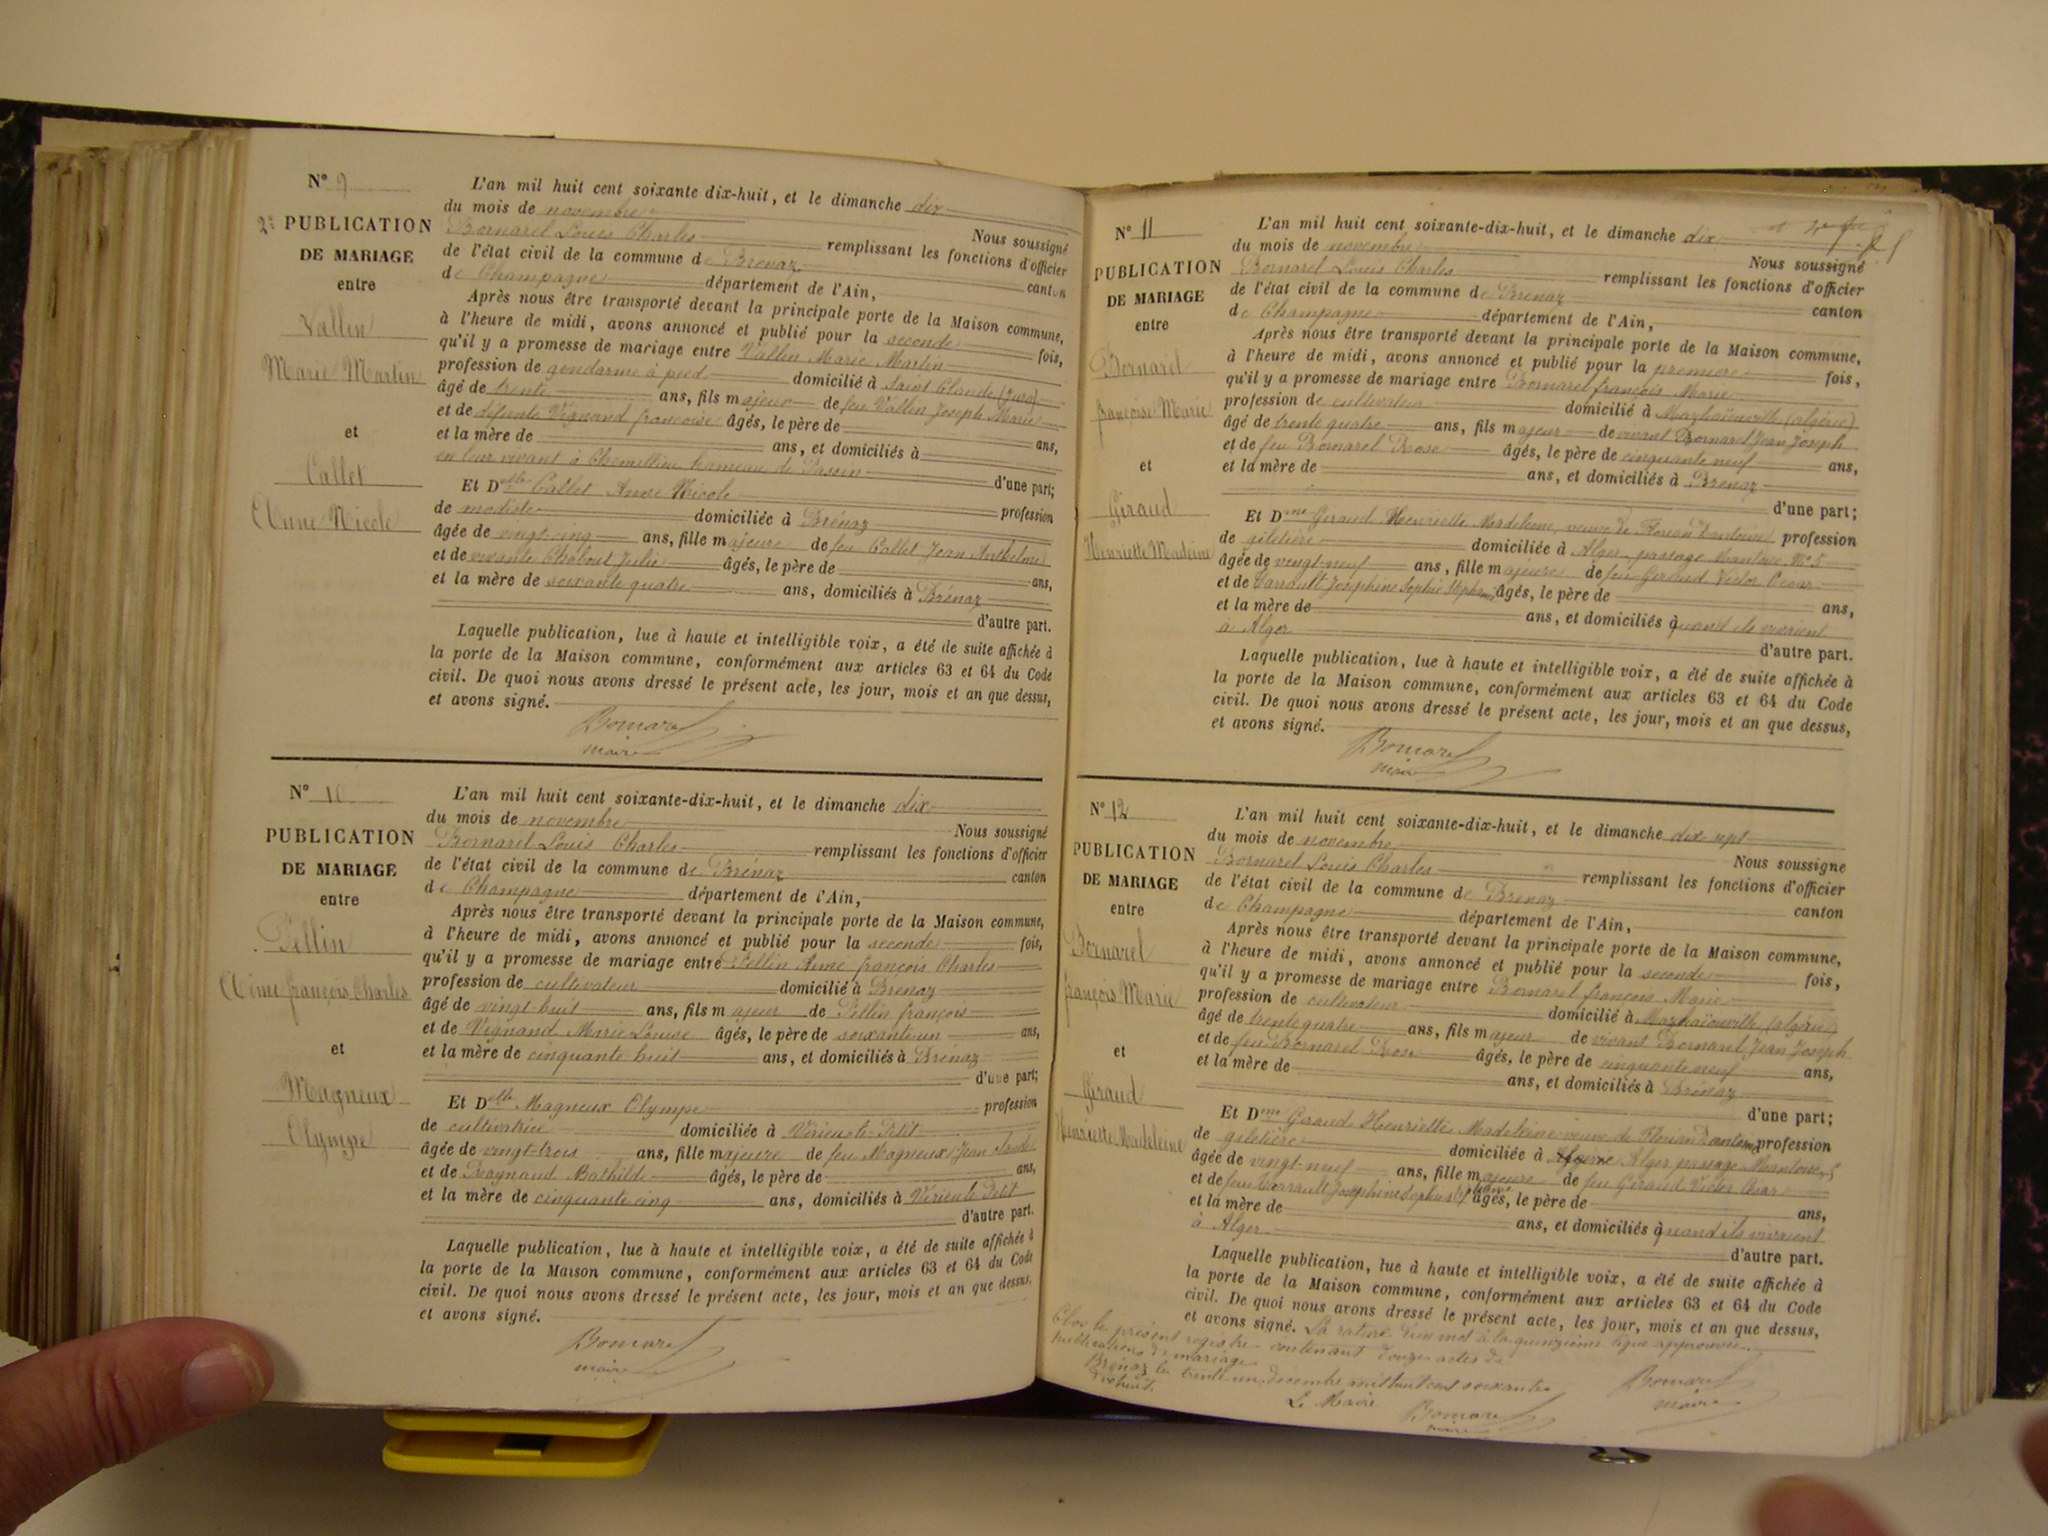 N° 9
2e PUBLICATION
DE MARIAGE
entre
Vallin
Marie Martin
et
Callet
Anne Nicole
L'an mil huit cent soixante dix-huit, et le dimanche dix
du mois de novembre Nous soussigné
Bornarel Louis Charles remplissant les fonctions d'officier
de l'état civil de la commune de Brénaz canton
de Champagne département de l'Ain,
Après nous être transporté devant la principale porte de la Maison commune,
à l'heure de midi, avons annoncé et publié pour la seconde fois,
qu'il y a promesse de mariage entre Vallin Marie Martin
profession de gendarme à pied domicilié à Saint Claude (Jura)
âgé de trente ans, fils majeur de feu Vallin Joseph Marie
et de défunte Vignand françoise âgés, le père de ans,
et la mère de ans, et domiciliés à
en leur vivant à hameau de Passin d'une part;
Et Delle Callet Anne Nicole profession
de modiste domiciliée à Brénaz
âgée de vingt-cinq ans, fille majeure de feu Callet Jean Anthelme
et de vivante Julie âgés, le père de ans,
et la mère de soixante quatre ans, domiciliés à Brénaz
d'autre part.
Laquelle publication, lue à haute et intelligible voix, a été de suite affichée à
la porte de la Maison commune, conformément aux articles 63 et 64 du Code
civil. De quoi nous avons dressé le présent acte, les jour, mois et an que dessus,
et avons signé.
Bornarel
maire
N° 10
PUBLICATION
DE MARIAGE
entre
Pellin
Aimé françois Charles
et
Magneux
Olympe
L'an mil huit cent soixante-dix-huit, et le dimanche dix
du mois de novembre Nous soussigné
Bornarel Louis Charles remplissant les fonctions d'officier
de l'état civil de la commune de Brénaz canton
de Champagne département de l'Ain,
Après nous être transporté devant la principale porte de la Maison commune,
à l'heure de midi, avons annoncé et publié pour la seconde fois,
qu'il y a promesse de mariage entre Pellin Aimé françois Charles
profession de cultivateur domicilié à Brénaz
âgé de vingt huit ans, fils majeur de Pellin françois
et de Vignand Marie Louise âgés, le père de soixante un ans,
et la mère de cinquante huit ans, et domiciliés à Brénaz
d'une part;
Et Delle Magneux Olympe profession
de cultivatrice domiciliée à Virieu le Petit
âgée de vingt-trois ans, fille majeure de feu Magneux Jean
et de Bathilde âgés, le père de ans,
et la mère de cinquante cinq ans, domiciliés à Virieu le Petit
d'autre part.
Laquelle publication, lue à haute et intelligible voix, a été de suite affichée à
la porte de la Maison commune, conformément aux articles 63 et 64 du Code
civil. De quoi nous avons dressé le présent acte, les jour, mois et an que dessus,
et avons signé.
Bornarel
maire
N° 11
PUBLICATION
DE MARIAGE
entre
Bornarel
françois Marie
et
Giraud
Henriette Madeleine
L'an mil huit cent soixante-dix-huit, et le dimanche dix
du mois de novembre Nous soussigné
Bornarel Louis Charles remplissant les fonctions d'officier
de l'état civil de la commune de Brénaz canton
de Champagne département de l'Ain,
Après nous être transporté devant la principale porte de la Maison commune,
à l'heure de midi, avons annoncé et publié pour la première fois,
qu'il y a promesse de mariage entre Bornarel françois Marie
profession de cultivateur domicilié à (algérie)
âgé de trente quatre ans, fils majeur de vivant Bornarel Jean Joseph
et de feu Bornarel Rose âgés, le père de cinquante neuf ans,
et la mère de ans, et domiciliés à Brénaz
d'une part;
Et Dme Giraud Henriette Madeleine, veuve de Florian profession
de giletière domiciliée à Alger passage Mantoue N° 5
âgée de vingt-neuf ans, fille majeure de feu Giraud Victor César
et de Joséphine Sophie Stéphanie âgés, le père de ans,
et la mère de ans, et domiciliés quand ils vivaient
à Alger d'autre part.
Laquelle publication, lue à haute et intelligible voix, a été de suite affichée à
la porte de la Maison commune, conformément aux articles 63 et 64 du Code
civil. De quoi nous avons dressé le présent acte, les jour, mois et an que dessus,
et avons signé.
Bornarel
maire
N° 12
PUBLICATION
DE MARIAGE
entre
Bornarel
françois Marie
et
Giraud
Henriette Madeleine
L'an mil huit cent soixante-dix-huit, et le dimanche dix sept
du mois de novembre Nous soussigné
Bornarel Louis Charles remplissant les fonctions d'officier
de l'état civil de la commune de Brénaz canton
de Champagne département de l'Ain,
Après nous être transporté devant la principale porte de la Maison commune,
à l'heure de midi, avons annoncé et publié pour la seconde fois,
qu'il y a promesse de mariage entre Bornarel françois Marie
profession de cultivateur domicilié à (algérie)
âgé de trente quatre ans, fils majeur de vivant Bornarel Jean Joseph
et de feu Bornarel Rose âgés, le père de cinquante neuf ans,
et la mère de ans, et domiciliés à Brénaz
d'une part;
Et Dme Giraud Henriette Madeleine veuve de Florian profession
de giletière domiciliée à Alger passage Mantoue 5
âgée de vingt-neuf ans, fille majeure de feu Giraud Victor César
et de feu Joséphine Sophie Stéphanie âgés, le père de ans,
et la mère de ans, et domiciliés quand ils vivaient
à Alger d'autre part.
Laquelle publication, lue à haute et intelligible voix, a été de suite affichée à
la porte de la Maison commune, conformément aux articles 63 et 64 du Code
civil. De quoi nous avons dressé le présent acte, les jour, mois et an que dessus,
et avons signé. La rature d'un mot à la quinzième ligne approuvée.
Clos le présent registre contenant douze actes de
publications de mariage
Brénaz le trente un décembre mil huit cent soixante
dix huit.
Le Maire
Bornarel
maire
Bornarel
maire